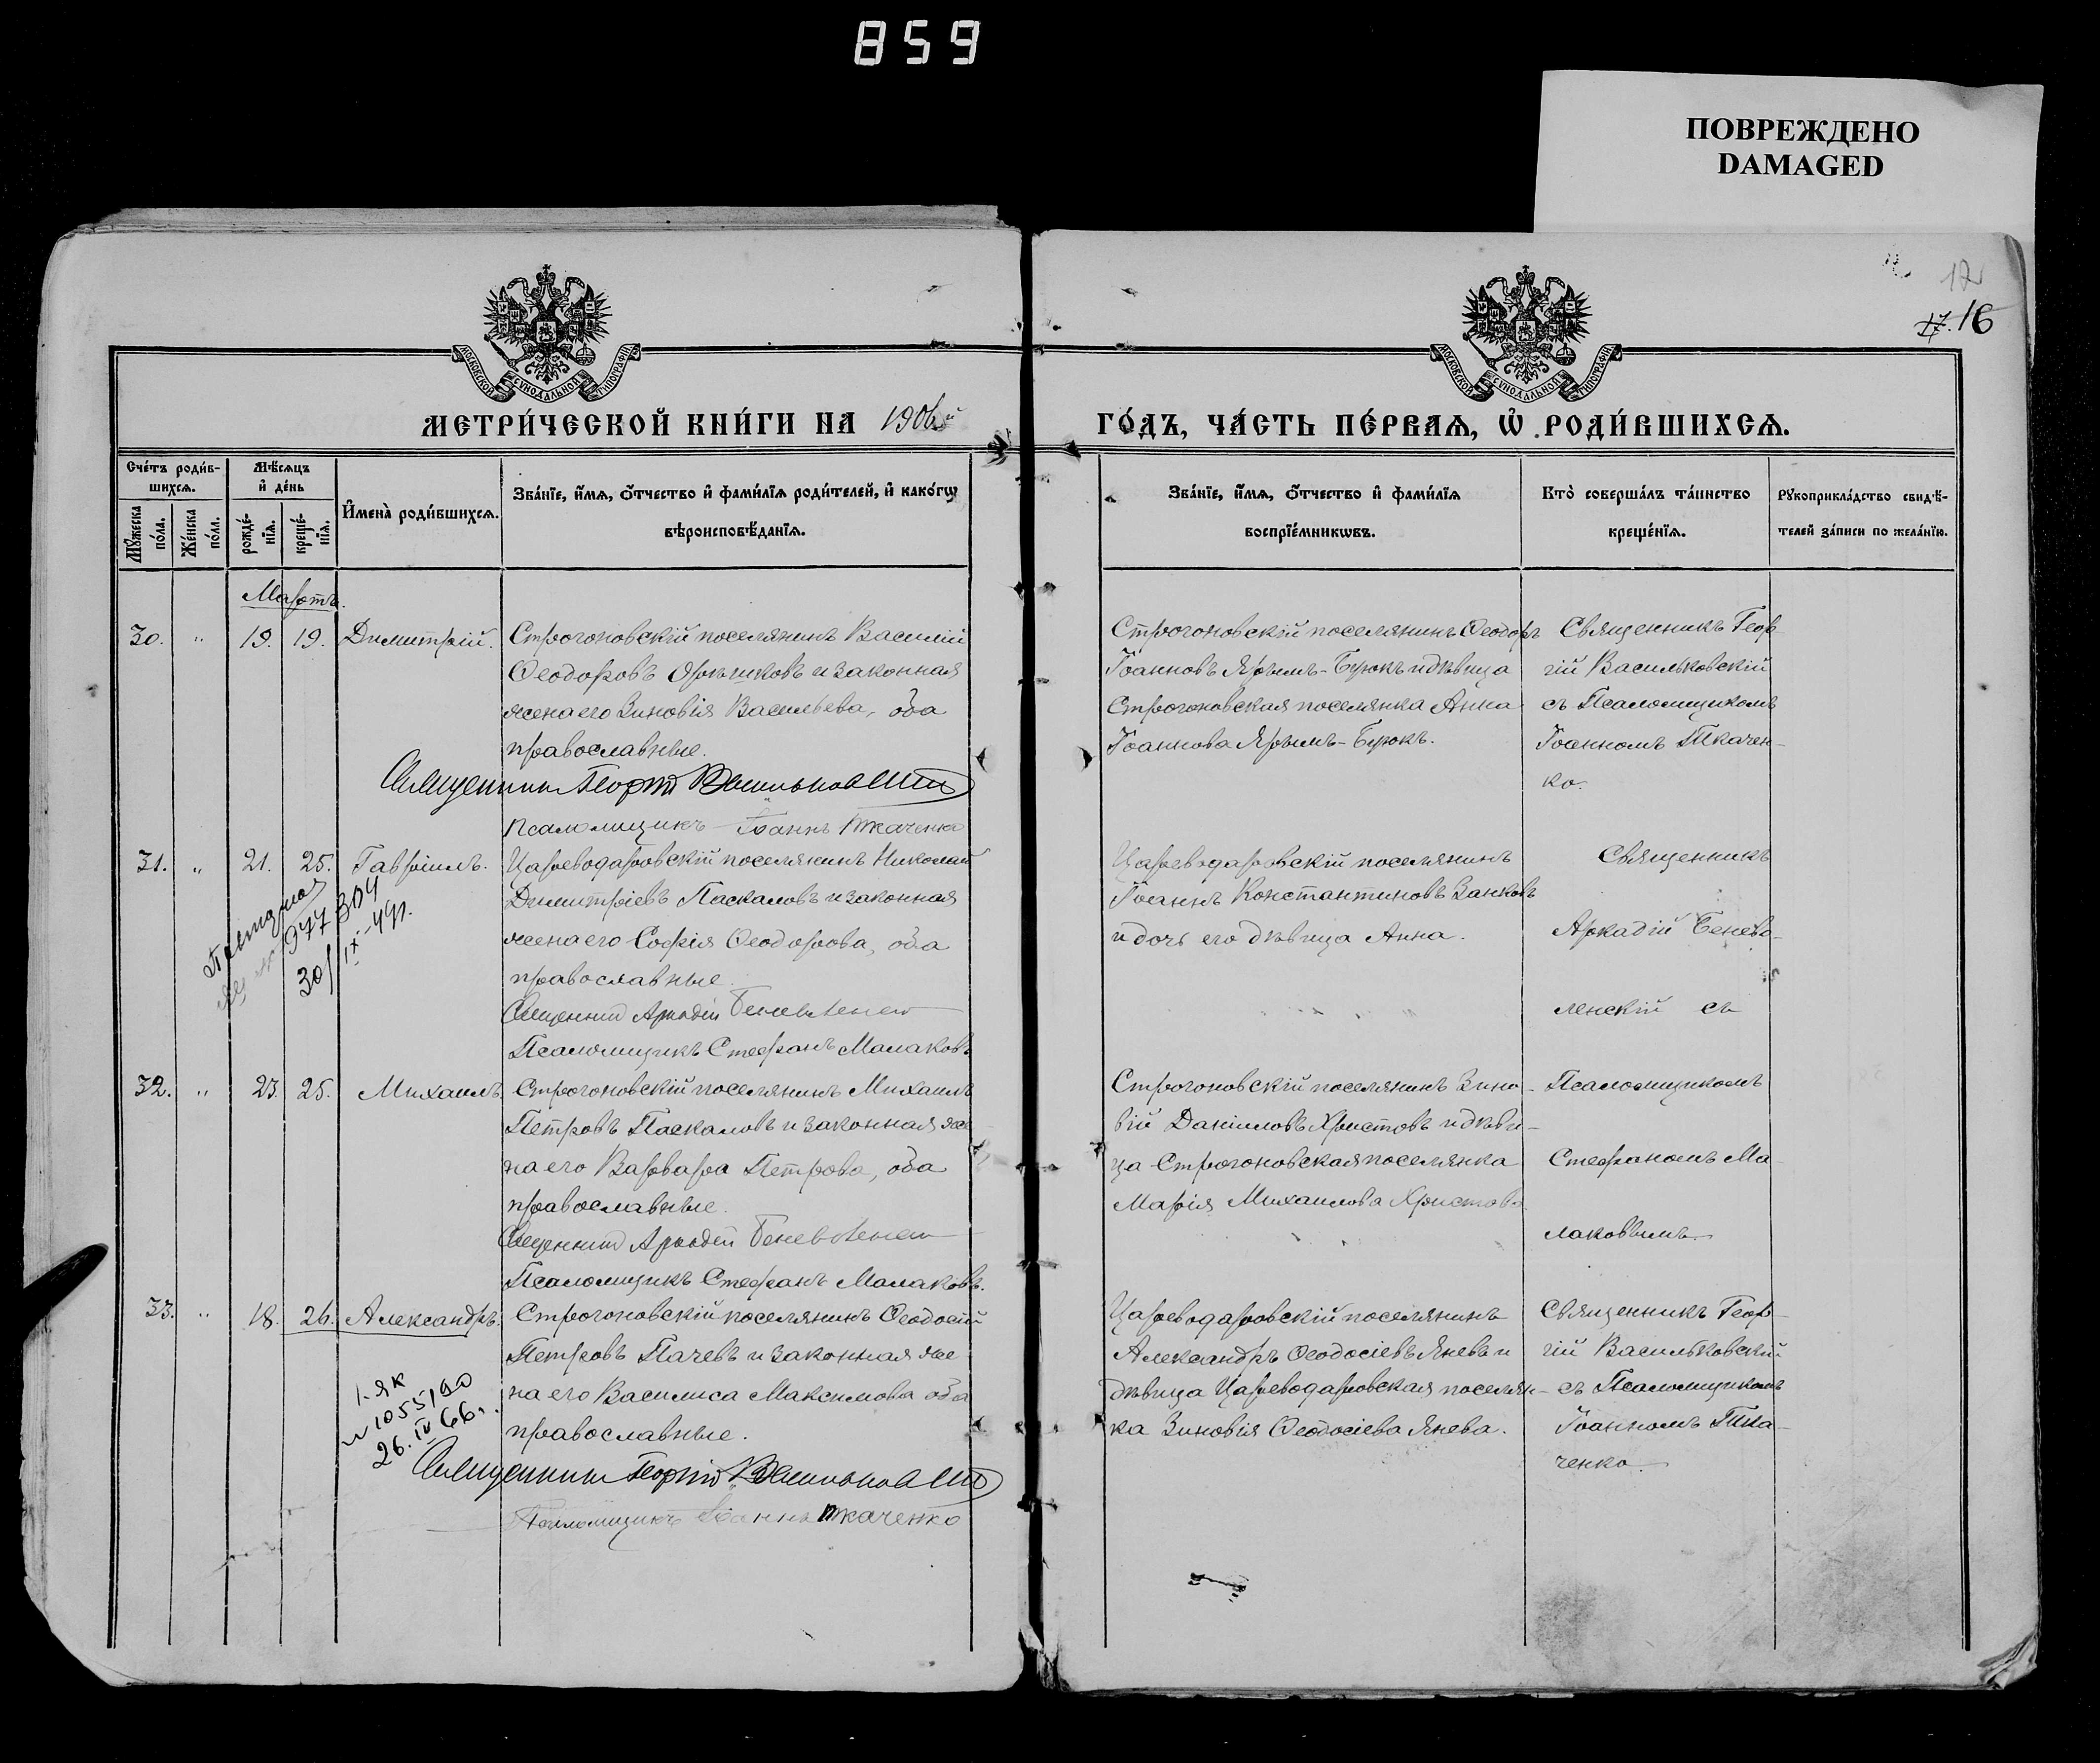 859
ПОВРЕЖДЕНО
DAMAGED
17
17. 16
МОСКОВСКОЙ СѴНОДАЛЬНОЙ ТИПОГРАФІИ
МОСКОВСКОЙ СѴНОДАЛЬНОЙ ТИПОГРАФІИ
МЕТРИ́ЧЕСКОЙ КНИ́ГИ НА 1906й
ГО́ДЪ, ЧА́СТЬ ПЕ́РВАѦ, Ѡ҆ РОДИ́ВШИХСѦ.
Сче́тъ роди́в-
шихсѧ.
Мѣ́сѧцъ
и҆ де́нь
И҆мена̀ роди́вшихсѧ.
Зва́нїе, и҆́мѧ, о҆́тчество и҆ фами́лїѧ роди́телей, и҆ како́гѡ
вѣроисповѣ́данїѧ.
Мꙋ́жеска
по́ла.
Же́нска
по́ла.
рожде́-
нїѧ.
креще́-
нїѧ.
Зва́нїе, и҆́мѧ, о҆́тчество и҆ фами́лїѧ
воспрїе́мникѡвъ.
Кто̀ соверша́лъ та́инство
креще́нїѧ.
Рꙋкоприкла́дство свидѣ́-
телей за́писи по жела́нїю.
Мартъ.
30. " 19. 19. Димитрій. Строгоновскій поселянинъ Василій
Ѳеодоровъ и законная
жена его Зиновія Васильева, оба
православные.
Священникъ Георгій Васильковскій
Псаломщикъ Іоаннъ Ткаченко
Строгоновскій поселянинъ Ѳеодоръ
Іоанновъ Ярымъ-Бурокъ и дѣвица
Строгоновская поселянка Анна
Іоаннова Ярымъ-Бурокъ.
Священникъ Геор-
гій Васильковскій
съ Псаломщикомъ
Іоанномъ Ткачен-
ко.
31. " 21. 25. Гавріилъ. Цареводаровскій поселянинъ Николай
Димитріевъ Паскаловъ и законная
жена его Софія Ѳеодорова, оба
православные.
Священникъ Аркадій Беневоленскій
Псаломщикъ Стефанъ Малаковъ
977304
30/IX-49г.
Цареводаровскій поселянинъ
Іоаннъ Константиновъ Занковъ
и дочь его дѣвица Анна.
Священникъ
Аркадій Бенево-
ленскій съ
32. " 23. 25. Михаилъ. Строгоновскій поселянинъ Михаилъ
Петровъ Паскаловъ и законная же-
на его Варвара Петрова, оба
православные.
Священникъ Аркадій Беневоленскій
Псаломщикъ Стефанъ Малаковъ.
Строгоновскій поселянинъ Зино-
вій Даніиловъ Христовъ и дѣви-
ца Строгоновская поселянка
Марія Михаилова Христова.
Псаломщикомъ
Стефаномъ Ма-
лаковымъ.
33. " 18. 26. Александръ. Строгоновскій поселянинъ Ѳеодосій
Петровъ Пачевъ и законная же-
на его Василиса Максимова оба
православные.
Священникъ Георгій Васильковскій
Псаломщикъ Іоаннъ Ткаченко
I-ЯК
№ 1055190
26.IV 66г.
Цареводаровскій поселянинъ
Александръ Ѳеодосіевъ Яневъ и
дѣвица Цареводаровская поселян-
ка Зиновія Ѳеодосіева Янева.
Священникъ Геор-
гій Васильковскій
съ Псаломщикомъ
Іоанномъ Тка-
ченко.